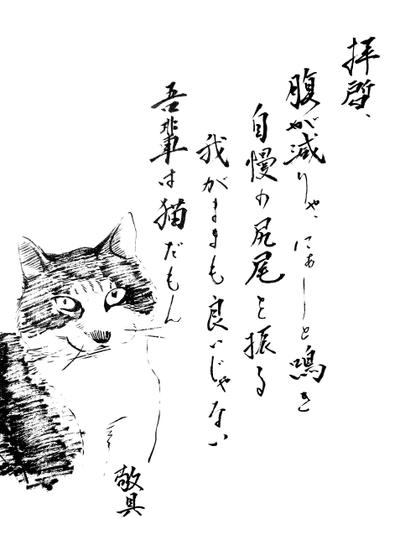 拝啓、
腹が減りゃ、にぁーと鳴き
自慢の尻尾を振る
我がままも良いじゃない
吾輩は猫だもん
敬具